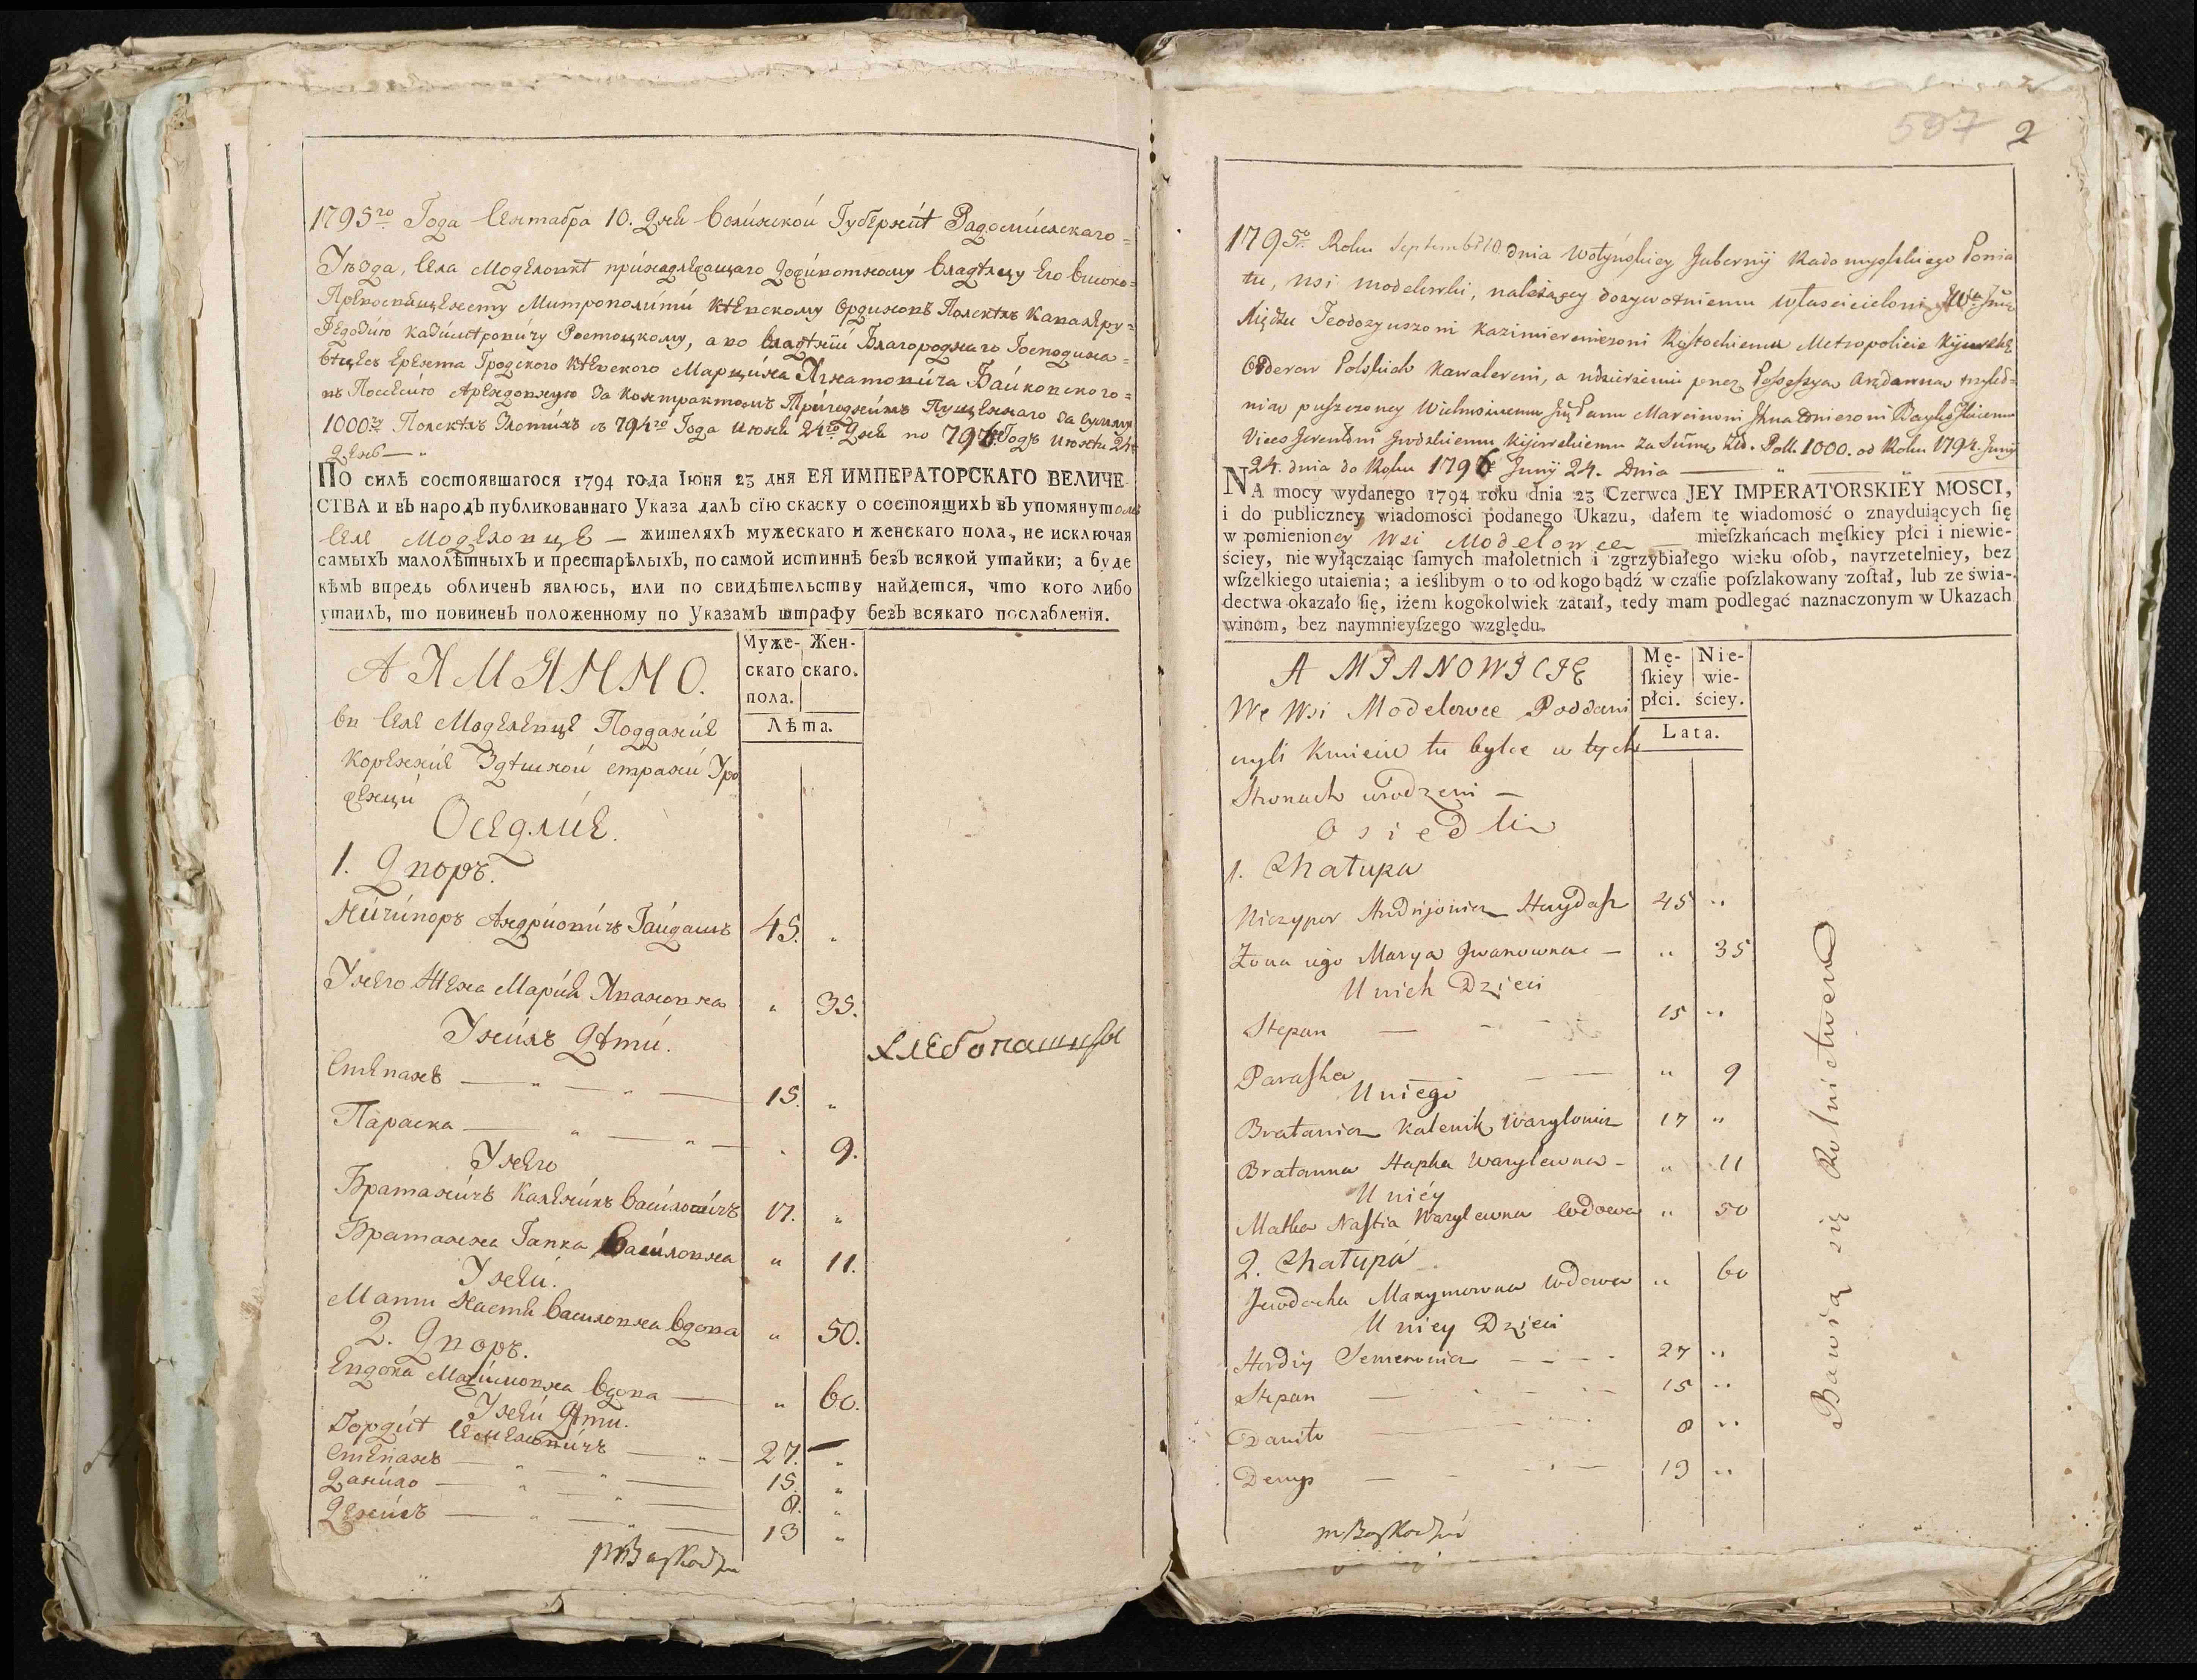 1795го Года Сентабра 10. Дня Волинской Губерніи Радомислскаго
Уѣзда, Села Моделовки принадлежащаго Владѣлцу Его Високо
Преосвященству Митрополиту Кіевскому Ординовъ Полскихъ Кавалеру
Феодосію Казимировичу Ростоцкому, а во владѣніи Благороднаго Господина
Гродского Кіевского Марцина Игнатовича Байковского
въ Посесию Арендовную За Контрактомъ Пущеннаго За Сумму
1000 Полскихъ Злотихъ съ 794го Года Июня 24го Дня по 796 Годъ Июня 24
День — „
ПО силѣ состоявшагося 1794 года Іюня 23 дня ЕЯ ИМПЕРАТОРСКАГО ВЕЛИЧЕ-
СТВА и въ народъ публикованнаго Указа далъ сїю скаску о состоящихъ въ упомянутомъ
Селе Моделовце — жителяхъ мужескаго и женскаго пола, не исключая
самыхъ малолѣтныхъ и престарѣлыхъ, по самой истиннѣ безъ всякой утайки; а буде
кѣмъ впредь обличенъ явлюсь, или по свидѣтельству найдется, что кого либо
утаилъ, то повиненъ положенному по Указамъ штрафу безъ всякаго послабленїя.
А И М Я Н Н О.
Муже- Жен-
скаго скаго.
пола.
Лѣта.
Въ Селе Моделевце Поддание
Коренние Здешной Уро
женци
Оседлие.
1. Дворъ.
Ничипоръ Андриовичъ Гайдашъ 45. „
У него Жена Мария Ивановна „ 35.
У нихъ Дѣти.
Степанъ — „ — „ — 15. „
Параска — „ — „ — „ 9.
У него
Братаничъ Каленикъ Василовичъ 17. „
Братанна Гапка Василовна „ 11.
У ней.
Мати Настя Василовна Вдова „ 50.
2. Дворъ.
Евдоха Махимовна Вдова — „ 60.
У ней Дѣти.
Гордій Семеновичъ — „ — 27. „
Степанъ — „ — „ — 15. „
Данило — „ — „ — 8. „
Денисъ — „ — „ — 13 „
хлебопашцы
597 2
1795o Roku Septembr 10 dnia Wołyńskiey Gubernij Radomyslskiego Powia
tu, wsi Modelowki, należącey dozywotniemu Włascicielowi
Xiędzu Teodozyuszowi Kazimierowiczowi Rostockiemu Metropolicie Kijowskie
Orderow Polskich Kawalerowi, a w dzierzeniu przez Possessya Arędowna
puszczoney Wielmoznemu Panu Marcinowi Ignatowiczowi Baykowskiemu
Vices Gerentowi Grodzkiemu Kijowskiemu za Sumę Złł. Poll. 1000. od Roku 1794. Junij
24. dnia do Roku 1796 Junij 24. Dnia —
NA mocy wydanego 1794 roku dnia 23 Czerwca JEY IMPERATORSKIEY MOSCI,
i do publiczney wiadomości podanego Ukazu, dałem tę wiadomość o znayduiących ſię
w pomienioney Wsi Modelowce — mieſzkańcach męſkiey płci i niewie-
ściey, nie wyłączaiąc ſamych małoletnich i zgrzybiałego wieku oſob, nayrzetelniey, bez
wſzelkiego utaienia; a ieślibym o to od kogo bądź w czaſie poſzlakowany zoſtał, lub ze świa-
dectwa okazało ſię, iżem kogokolwiek zataił, tedy mam podlegać naznaczonym w Ukazach
winom, bez naymnieyſzego względu.
A MIANOWICIE
Mę- Nie-
ſkiey wie-
płci. ściey.
Lata.
We Wsi Modelowce Poddani
czyli Kmiecie tu bylce w tych
Stronach urodzeni —
Osiedli
1. Chałupa
Niczypor Andrijowicz Haydasz 45 „
Żona iego Marya Iwanowna — „ 35
U nich Dzieci
Stepan — 15 „
Paraska — „ 9
U niego
Bratanicz Kalenik Warylowicz 17 „
Bratanna Hapka Warylewna — „ 11
U niéy
Matka Nastia Warylewna wdowa „ 50
2. Chałupa
Jewdocha Maxymowna wdowa „ 60
U niey Dzieci
Hordiy Semenowicz — 27 „
Stepan — 15 „
Daniło — 8 „
Denys — 13 „
Bawią się Rolnictwem